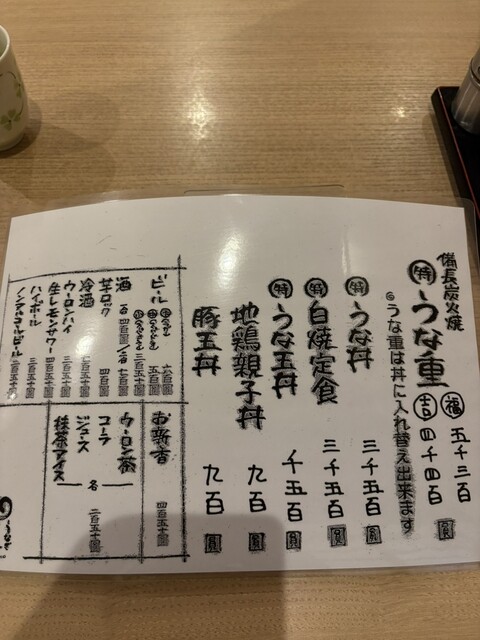 備長炭火焼
特 うな重 福 五千三百
吉 四千四百 圓
◎うな重は丼に入れ替え出来ます
特 うな丼 三千五百 圓
特 白焼定食 三千五百 圓
特 うな玉丼 千五百 圓
地鶏親子丼 九百 圓
豚玉丼 九百 圓
ビール
六百圓
五百圓
三百五十圓
酒
四百圓
七百圓
芋ロック 四百圓
冷酒
ウーロンハイ 三百五十圓
生レモンサワー 四百五十圓
ハイボール
ノンアルコールビール 三百五十圓
お新香 四百五十圓
ウーロン茶
コーラ
ジュース
抹茶アイス
各 二百五十圓
うなぎ